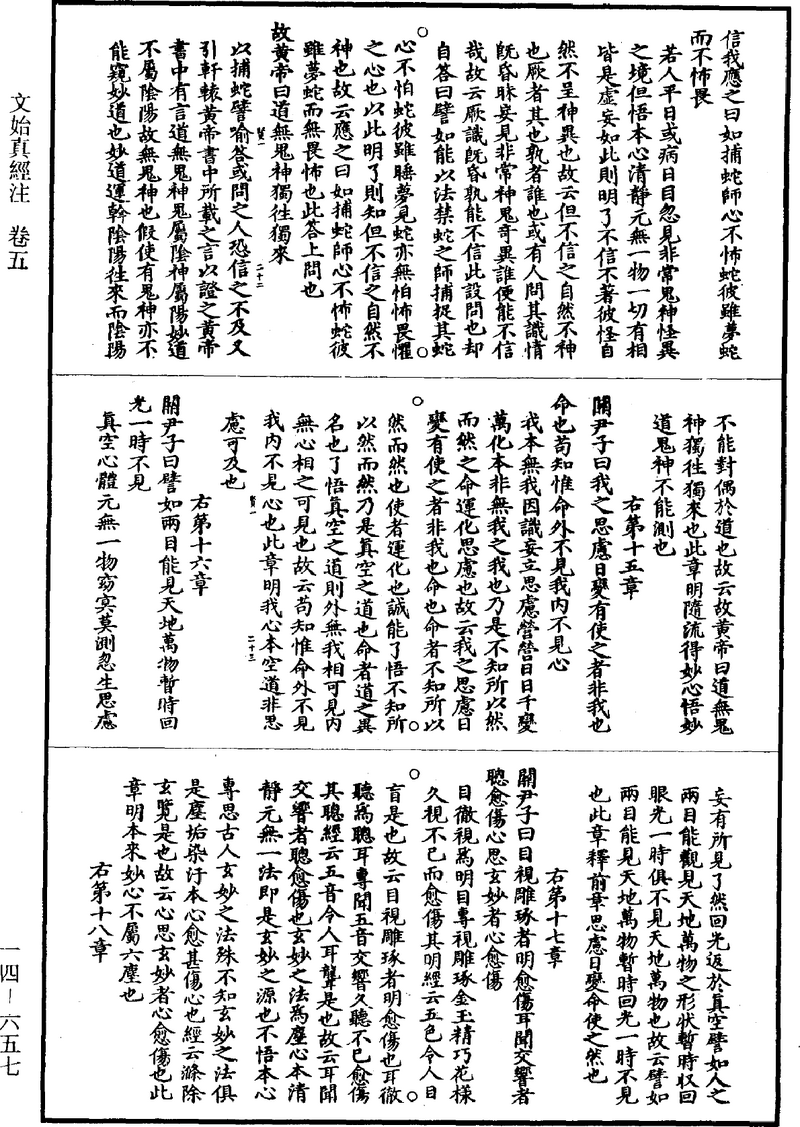 信我應之曰如捕蛇師心不怖蛇彼雖夢蛇
而不怖畏
若人平日或病日目忽見非常鬼神怪異
之境但悟本心清靜元無一物一切有相
皆是虛妄如此則明了不信不著彼怪自
然不呈神異也故云但不信之自然不神
也厥者其也孰者誰也或有人問其識情
旣昏昧妄見非常神鬼奇異誰便能不信
哉故云厥識旣昏孰能不信此設問也却
自答曰譬如能以法禁蛇之師捕捉其蛇
心不怕蛇彼雖睡夢見蛇亦無怕怖畏懼
之心也以此明了則知但不信之自然不
神也故云應之曰如捕蛇師心不怖蛇彼
雖夢蛇而無畏怖也此答上問也
故黃帝曰道無鬼神獨往獨來
以捕蛇譬喻答或問之人恐信之不及又
引軒轅黃帝書中所載之言以證之黃帝
書中有言道無鬼神鬼屬陰神屬陽妙道
不屬陰陽故無鬼神也假使有鬼神亦不
能窺妙道也妙道運斡陰陽往來而陰陽
不能對偶於道也故云故黃帝曰道無鬼
神獨往獨來也此章明隨流得妙心悟妙
道鬼神不能測也
右第十五章
關尹子曰我之思慮日變有使之者非我也
命也苟知惟命外不見我內不見心
我本無我因識妄立思慮營營日日千變
萬化本非無我之我也乃是不知所以然
而然之命運化思慮也故云我之思慮日
變有使之者非我也命也命者不知所以
然而然也使者運化也誠能了悟不知所
以然而然乃是真空之道也命者道之異
名也了悟真空之道則外無我相可見內
無心相之可見也故云苟知惟命外不見
我內不見心也此章明我心本空道非思
慮可及也
右第十六章
關尹子曰譬如兩目能見天地萬物暫時回
光一時不見
真空心體元無一物窈冥莫測忽生思慮
妄有所見了然回光返於真空譬如人之
兩目能觀見天地萬物之形狀暫時収回
眼光一時俱不見天地萬物也故云譬如
兩目能見天地萬物暫時回光一時不見
也此章釋前章思慮日變命使之然也
右第十七章
關尹子曰目視雕琢者明愈傷耳聞交響者
聰愈傷心思玄妙者心愈傷
目徹視爲明目專視雕琢金玉精巧花樣
久視不已而愈傷其明經云五色令人目
盲是也故云目視雕琢者明愈傷也耳徹
聽爲聰耳專聞五音交響久聽不已愈傷
其聰經云五音令人耳聾是也故云耳聞
交響者聰愈傷也玄妙之法爲塵心本清
靜元無一法即是玄妙之源也不悟本心
專思古人玄妙之法殊不知玄妙之法俱
是塵垢染汙本心愈甚傷心也經云滌除
玄覽是也故云心思玄妙者心愈傷也此
章明本來妙心不屬六塵也
右第十八章
文始真經注 卷五
一四－六五七